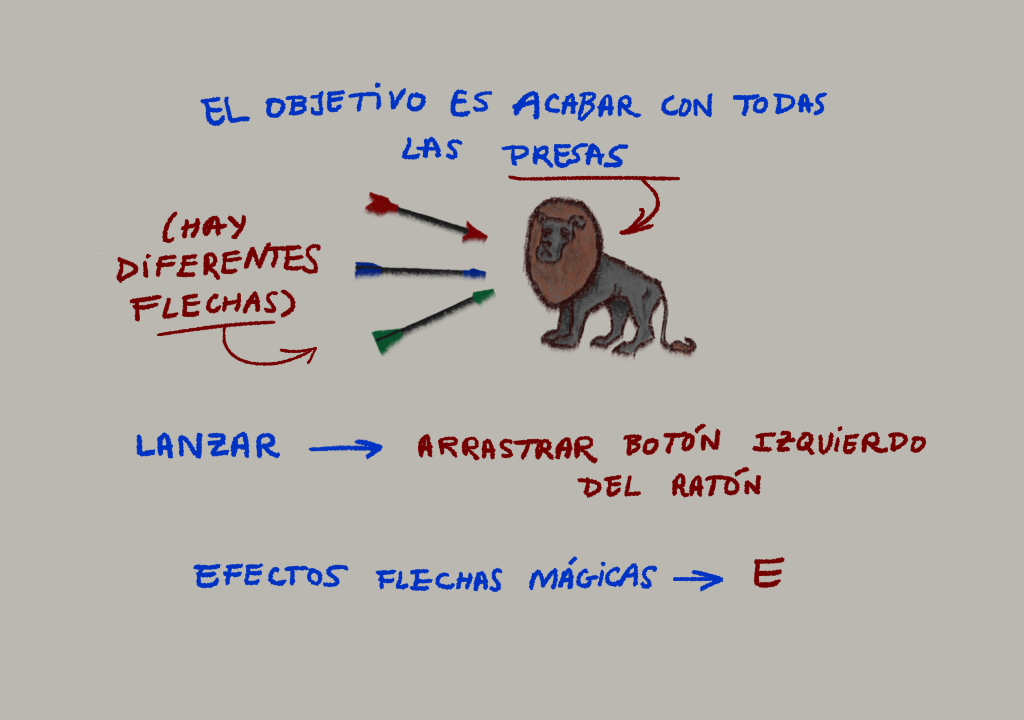 EL OBJETIVO ES ACABAR CON TODAS
LAS PRESAS
(HAY
DIFERENTES
FLECHAS)
LANZAR → ARRASTRAR BOTÓN IZQUIERDO
DEL RATÓN
EFECTOS FLECHAS MÁGICAS → E